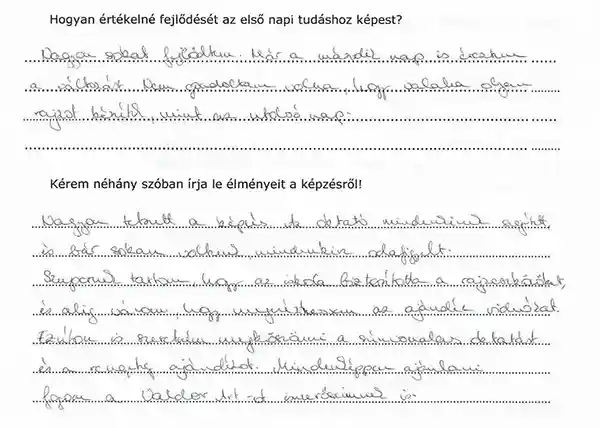 Hogyan értékelné fejlődését az első napi tudáshoz képest?
Nagyon sokat fejlődtem. Már a második nap is éreztem
a változást. Nem gondoltam volna, hogy valaha olyan
rajzot készítek, mint az utolsó nap.
Kérem néhány szóban írja le élményeit a képzésről!
Nagyon tetszett a képzés, az oktató mindenkinek segített,
és bár sokan voltunk, mindenkire odafigyelt.
Szuperнek tartom, hogy az iskola biztosította a rajzeszközöket,
és alig várom, hogy megnézhessem az ajándék videókat.
Ezúton is szeretném megköszönni a színvonalas oktatást
és a rengeteg ajándékot. Mindenképpen ajánlani
fogom a Valdor Art-ot ismerőseimnek is.